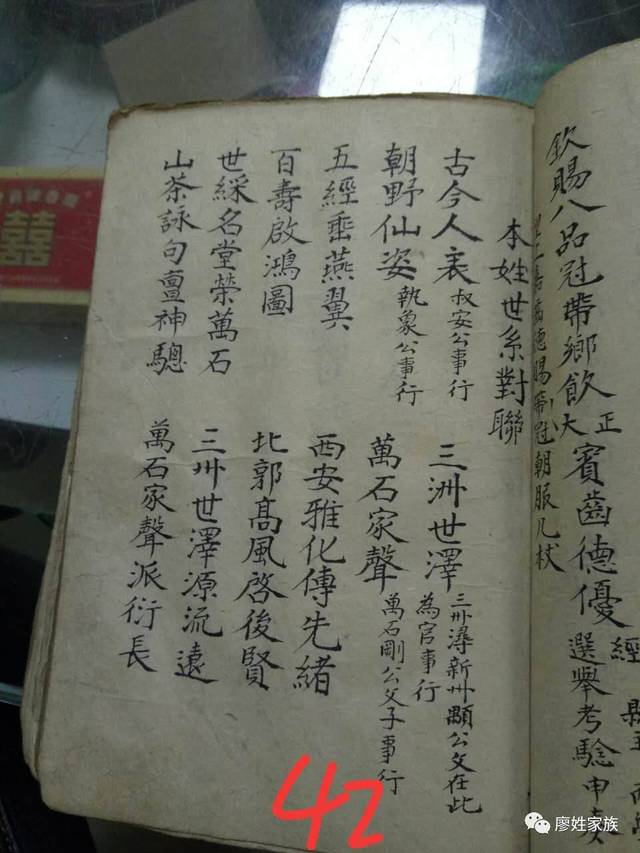 欽賜八品冠帶鄉飲正大賓齒德優
選舉考驗申奏
經
德賜帶冠朝服几杖
本姓世系對聯
古今人表 叔安公事行
朝野仙姿 執象公事行
五經垂燕翼
百壽啟鴻圖
世綵名堂榮萬石
山茶詠句亶神驄
三洲世澤 三卅潯新卅顯公文在此
為官事行
萬石家聲 萬石剛公父子事行
西安雅化傳先緒
北郭高風啓後賢
三卅世澤源流遠
萬石家聲派衍長
囍
42
廖姓家族